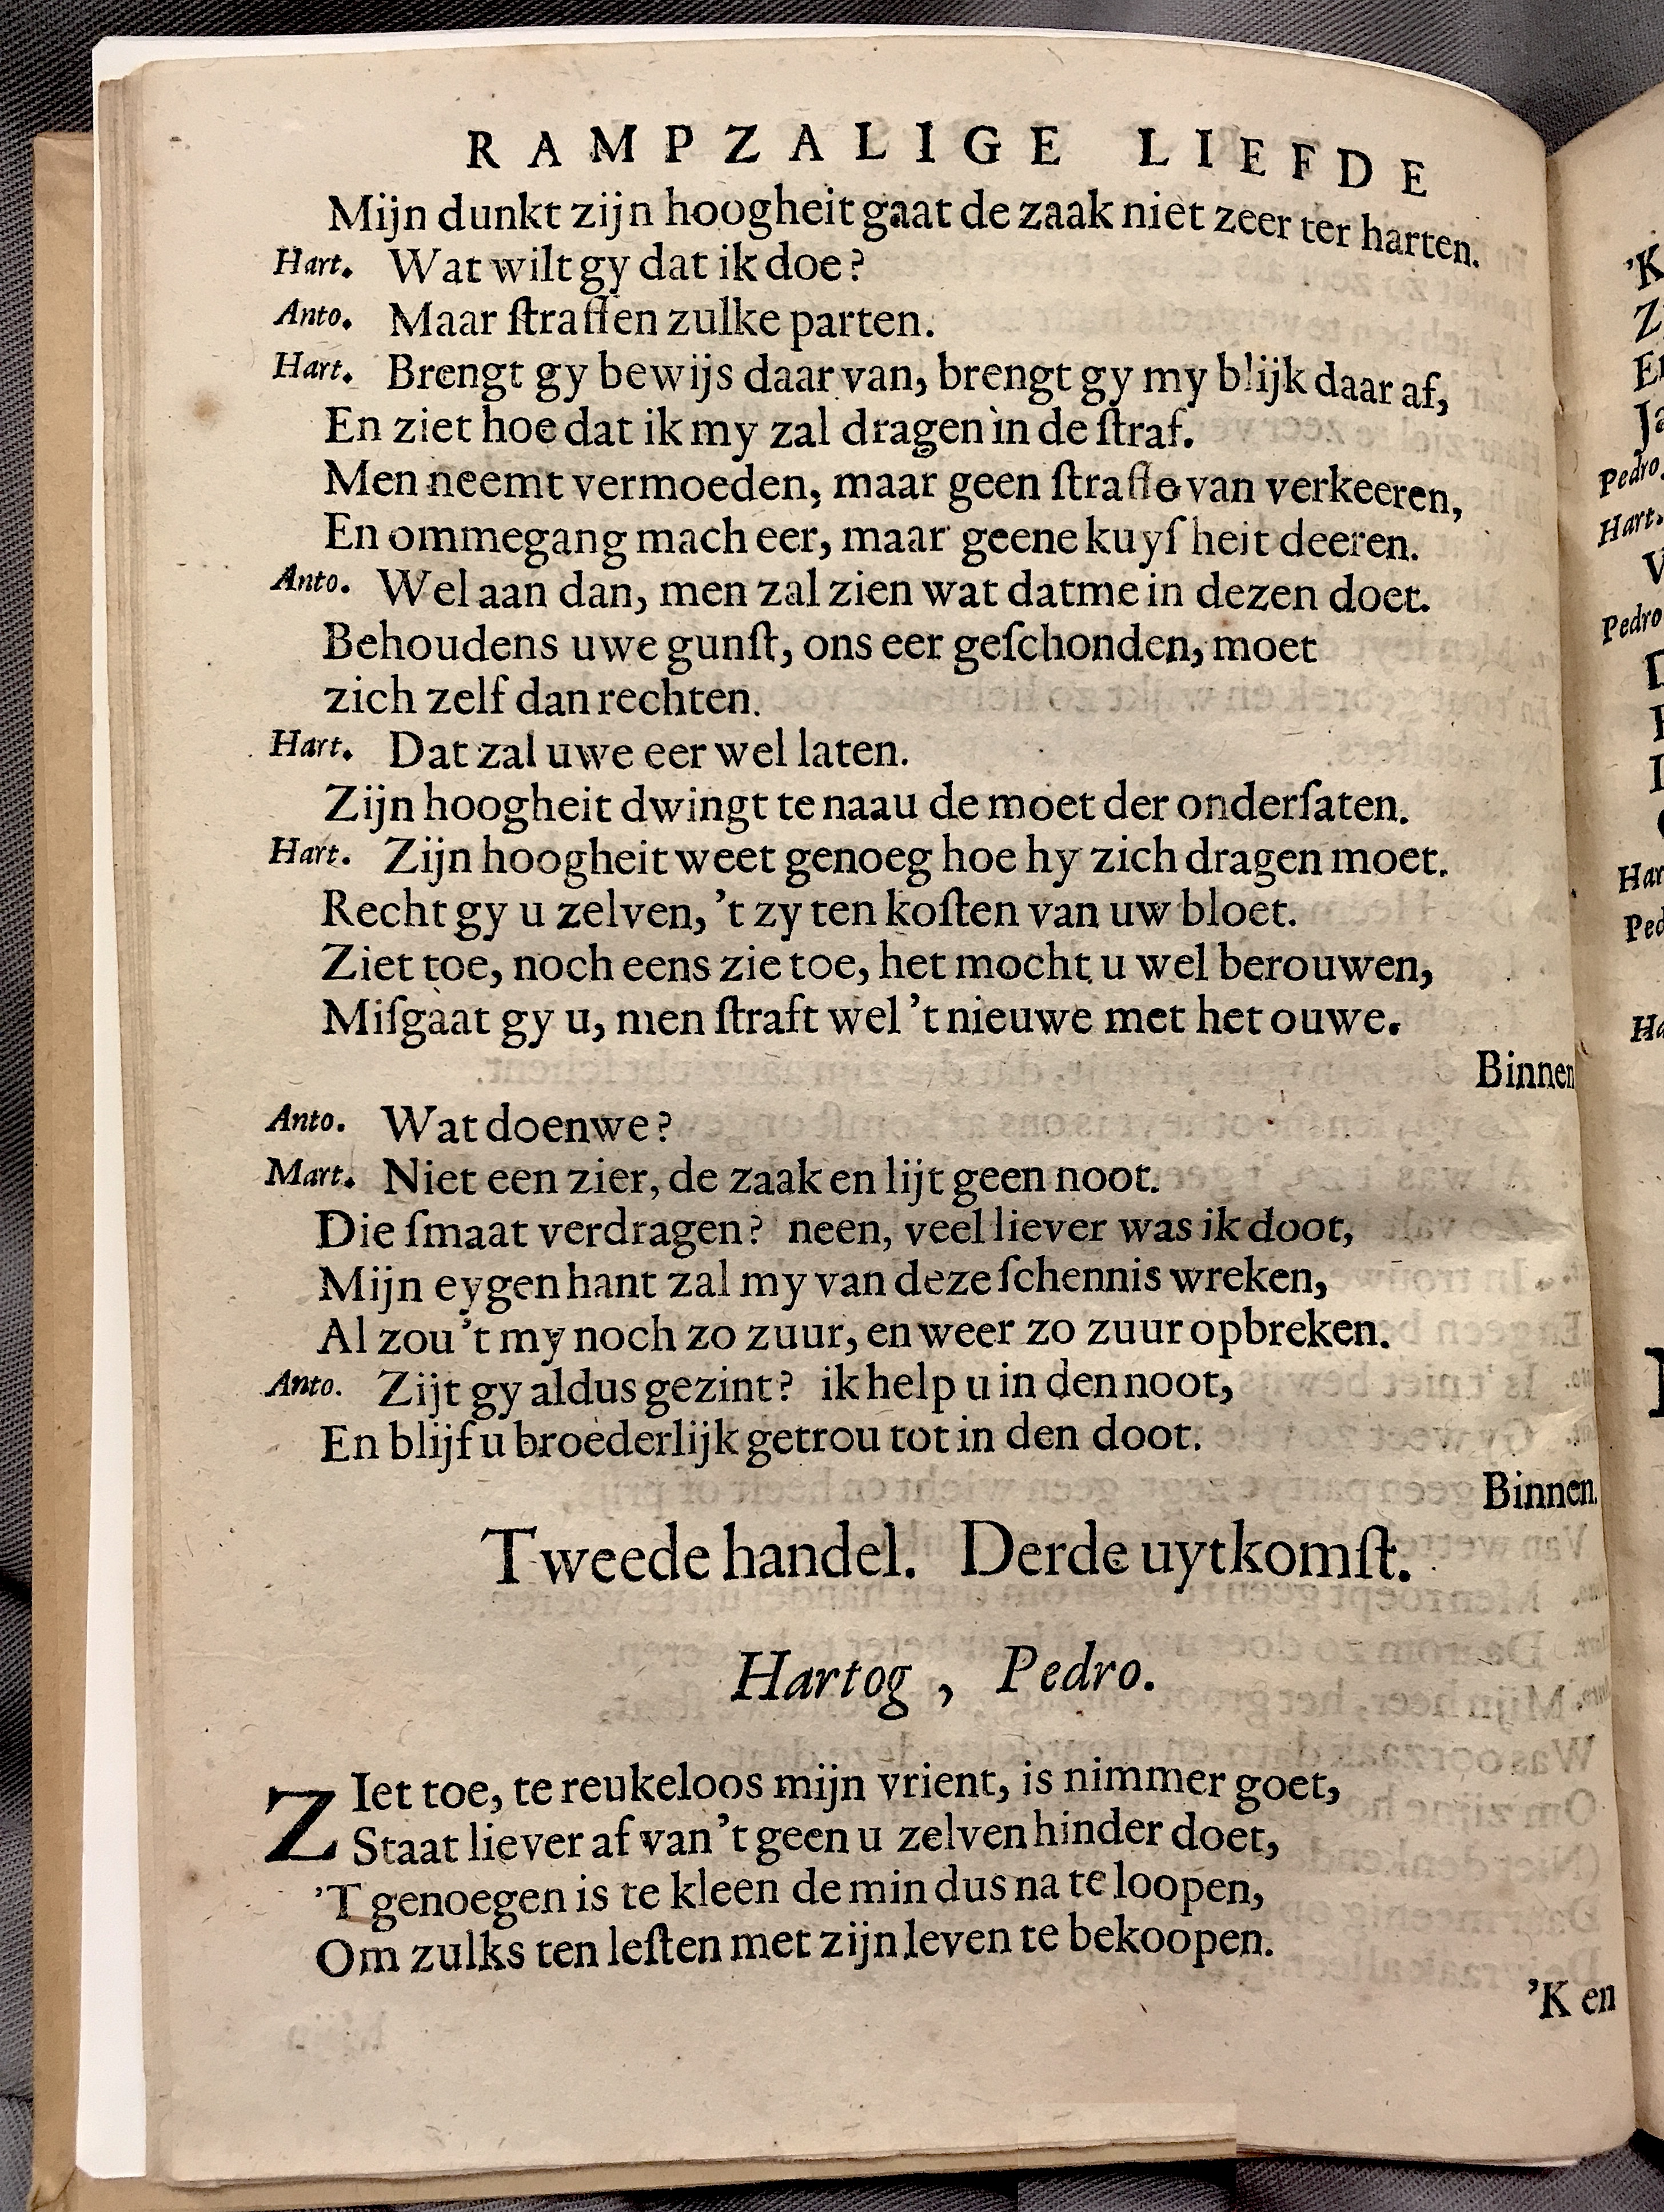 RAMPZALIGE LIEFDE
Mijn dunkt zijn hoogheit gaat de zaak niet zeer ter harten.
Hart. Wat wilt gy dat ik doe?
Anto. Maar ſtraffen zulke parten.
Hart. Brengt gy bewijs daar van, brengt gy my blijk daar af,
En ziet hoe dat ik my zal dragen in de ſtraf.
Men neemt vermoeden, maar geen ſtraffe van verkeeren,
En ommegang mach eer, maar geene kuyſheit deeren.
Anto. Wel aan dan, men zal zien wat datme in dezen doet.
Behoudens uwe gunſt, ons eer geſchonden, moet
zich zelf dan rechten.
Hart. Dat zal uwe eer wel laten.
Zijn hoogheit dwingt te naau de moet der onderſaten.
Hart. Zijn hoogheit weet genoeg hoe hy zich dragen moet.
Recht gy u zelven, 't zy ten koſten van uw bloet.
Ziet toe, noch eens zie toe, het mocht u wel berouwen,
Miſgaat gy u, men ſtraft wel 't nieuwe met het ouwe.
Binnen
Anto. Wat doenwe?
Mart. Niet een zier, de zaak en lijt geen noot.
Die ſmaat verdragen? neen, veel liever was ik doot,
Mijn eygen hant zal my van deze ſchennis wreken,
Al zou 't my noch zo zuur, en weer zo zuur opbreken.
Anto. Zijt gy aldus gezint? ik help u in den noot,
En blijf u broederlijk getrou tot in den doot.
Binnen.
Tweede handel. Derde uytkomſt.
Hartog, Pedro.
ZIet toe, te reukeloos mijn vrient, is nimmer goet,
Staat liever af van 't geen u zelven hinder doet,
'T genoegen is te kleen de min dus na te loopen,
Om zulks ten leſten met zijn leven te bekoopen.
'K en
'K
Pedro.
Hart.
Pedro